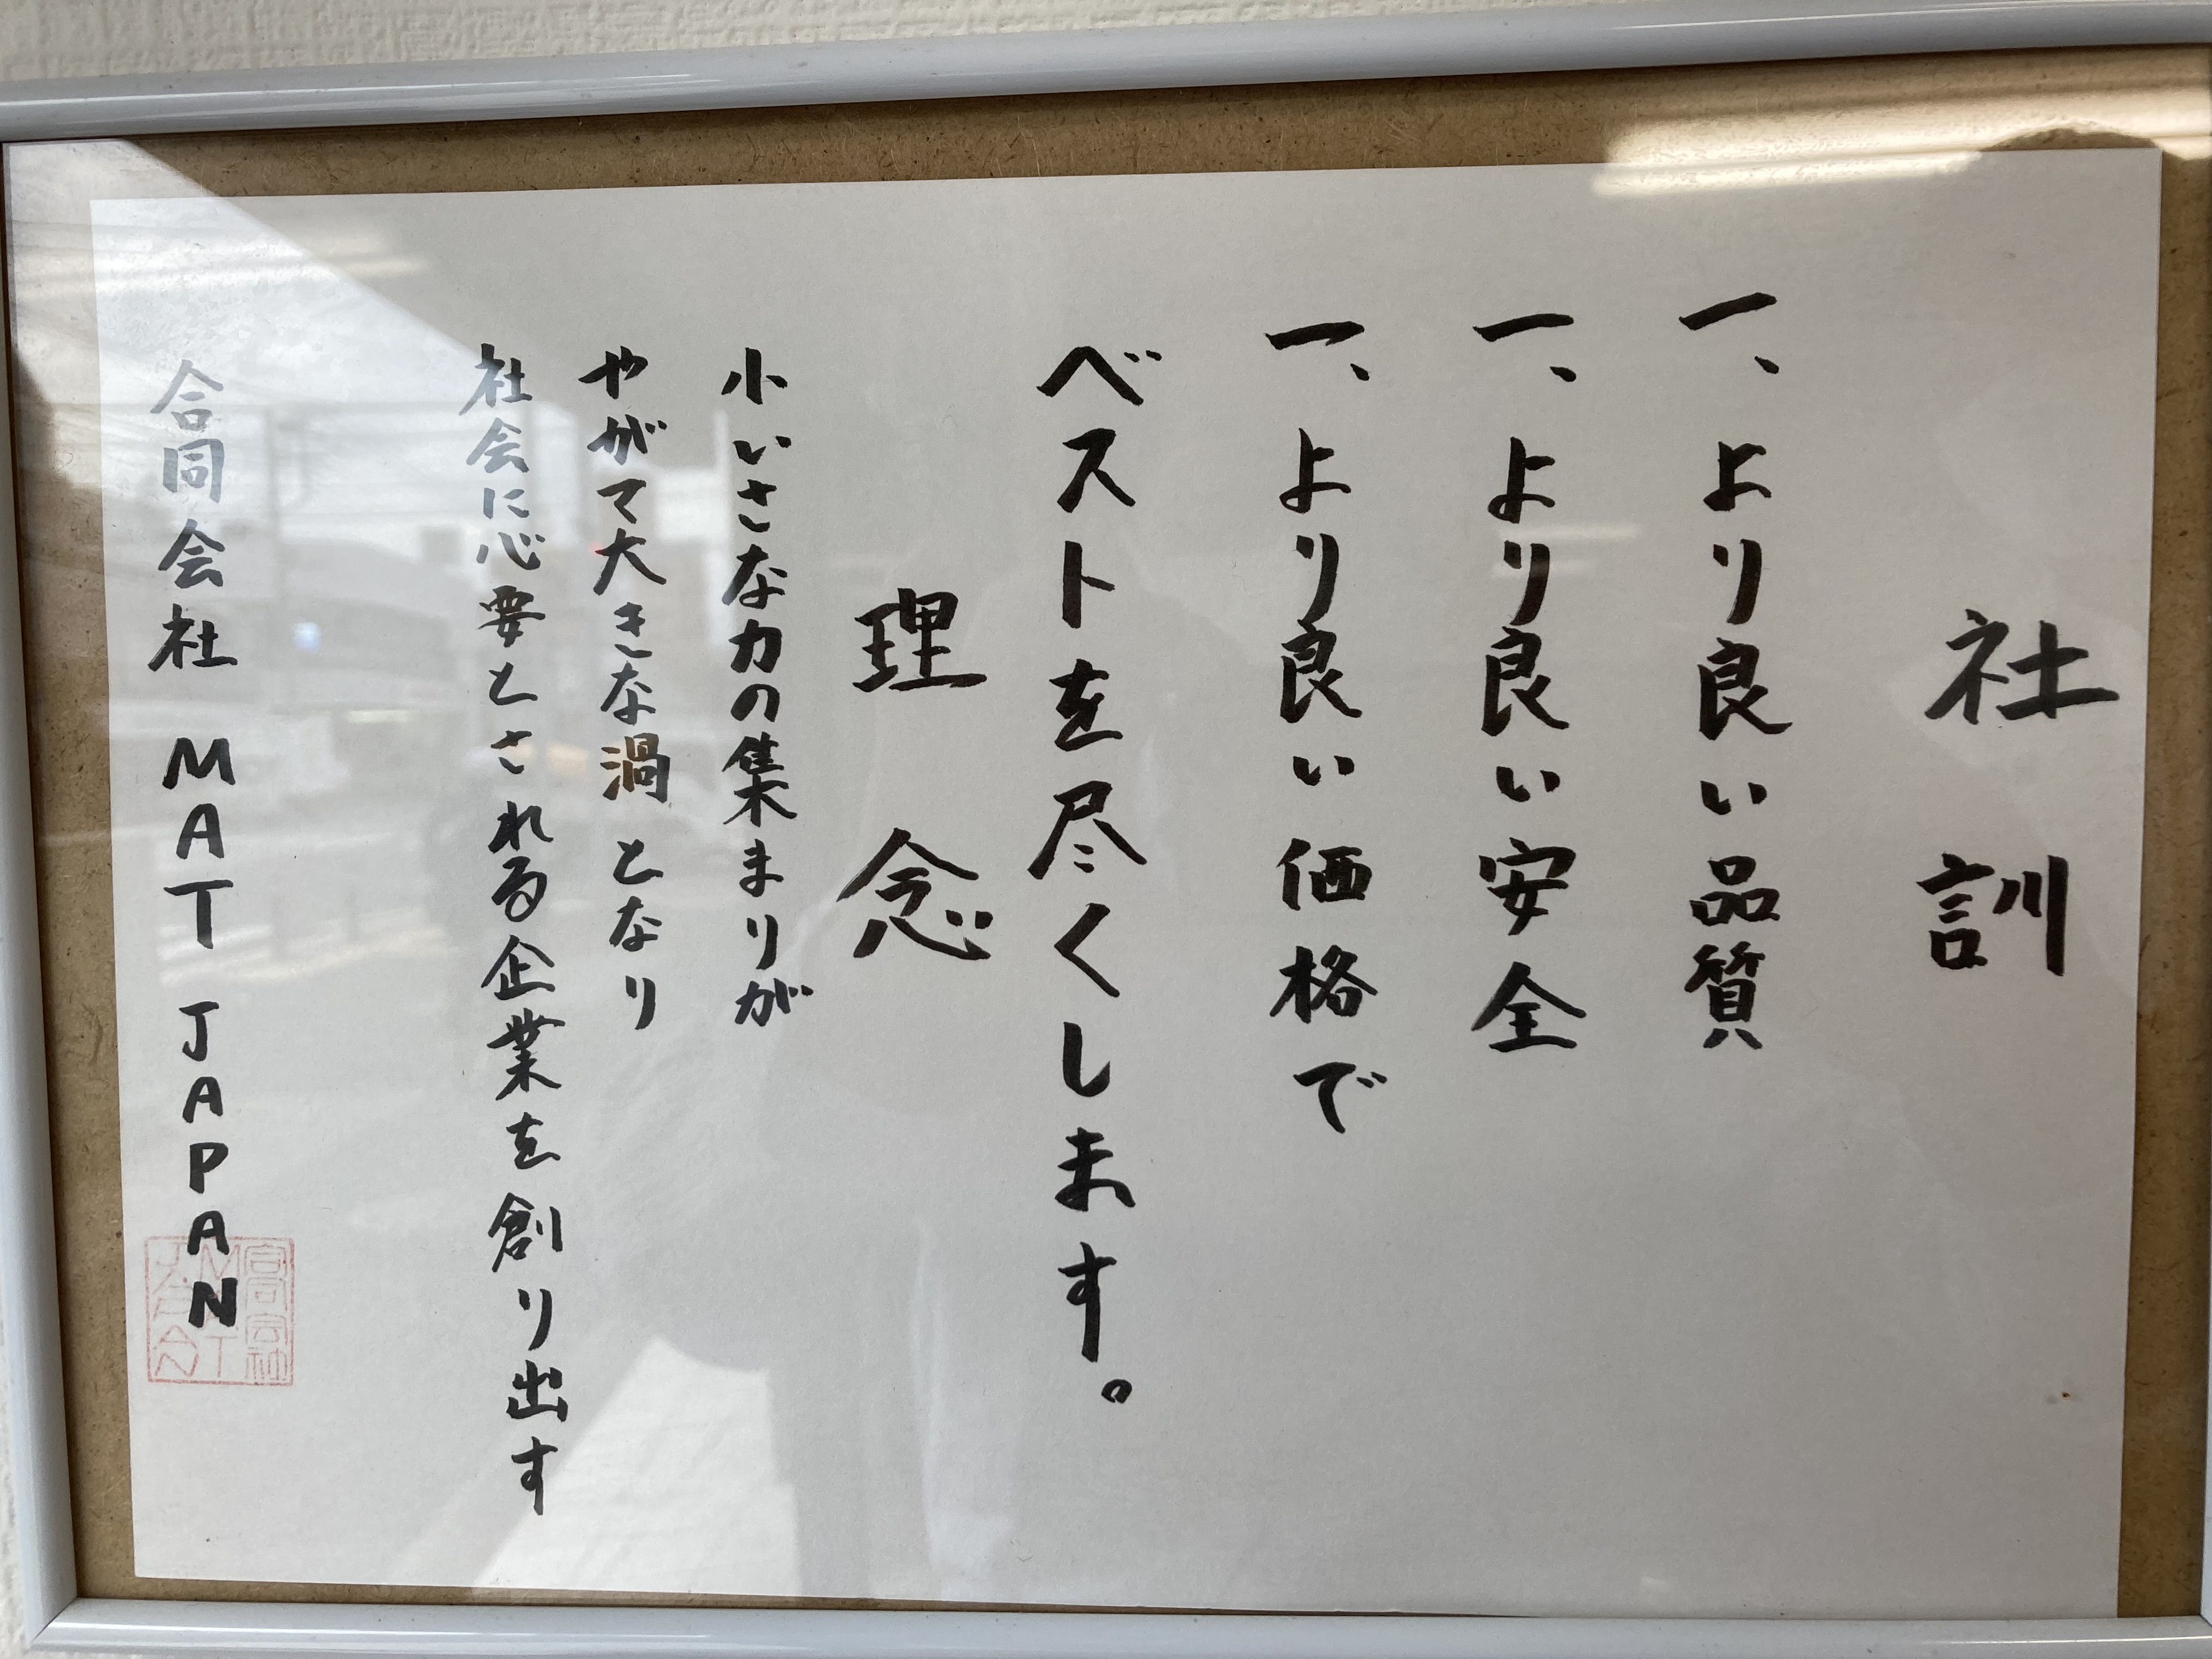 社訓
一、より良い品質
一、より良い安全
一、より良い価格で
ベストを尽くします。
理念
小いさな力の集まりが
やがて大きな渦となり
社会に必要とされる企業を創り出す
合同会社 MAT JAPAN